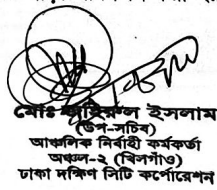 মোঃ জাহিরুল ইসলাম
(উপ-সচিব)
আঞ্চলিক নির্বাহী কর্মকর্তা
অঞ্চল-২ (খিলগাঁও)
ঢাকা দক্ষিণ সিটি কর্পোরেশন